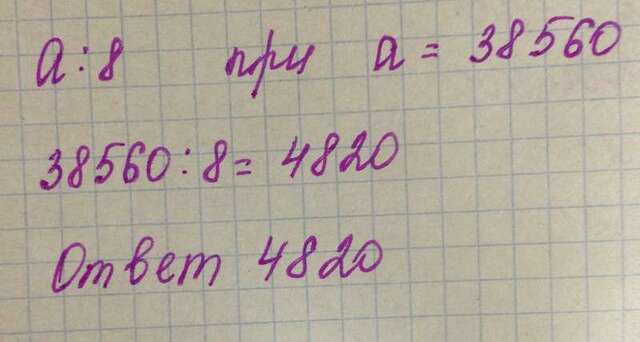 a:8 при a = 38560
38560:8= 4820
Ответ 4820